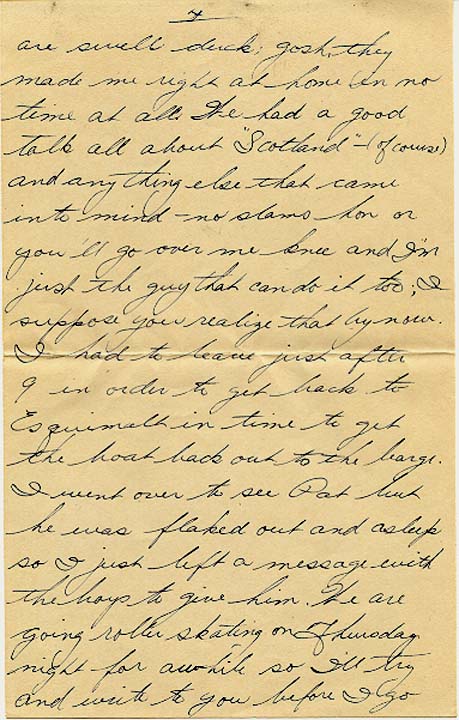 4
are swell duck; gosh, they
made me right at home in no
time at all. We had a good
talk all about "Scotland" - (of course)
and anything else that came
into mind - no slams hon or
you'll go over me knee and I'm
just the guy that can do it too; I
suppose you realize that by now.
I had to leave just after
9 in order to get back to
Esquimalt in time to get
the boat back out to the barge.
I went over to see Pat but
he was flaked out and asleep
so I just left a message with
the boys to give him. We are
going roller skating on Thursday
night for awhile so I'll try
and write to you before I go